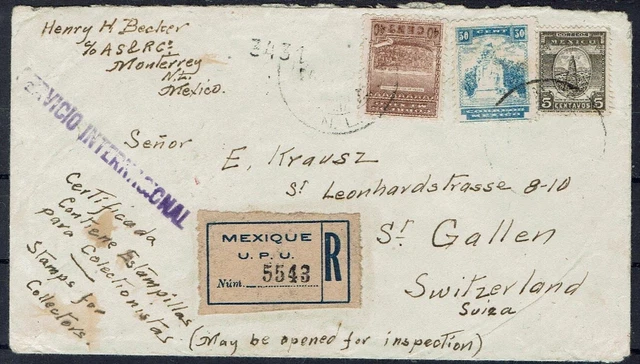 Henry H. Becker
c/o AS&R Co.
Monterrey
N.L.
Mexico.
3431
40 CENS 40
50 CENT 50
CORREOS
MEXICO
CORREOS
MEXICO
5 CENTAVOS 5
N.L.
SERVICIO INTERNACIONAL
Señor
E. Krausz
St Leonhardstrasse 8-10
St. Gallen
Switzerland
Suiza
Certificada
Contiene Estampillas
para Colectionistas
Stamps for
Collectors.
MEXIQUE
U. P. U.
Núm. 5543
R
(May be opened for inspection)